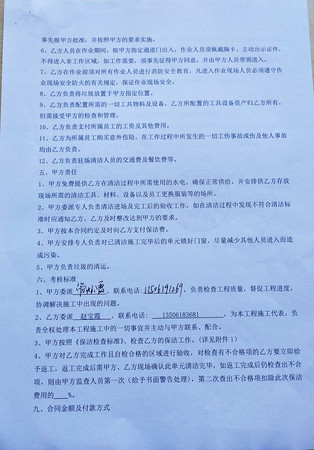 事先报甲方批准，并按甲方的要求实施。
6、乙方人员在作业期间，按甲方指定通道门出入，作业人员须佩戴胸卡、主动出示证件，
不得进入非工作区域，如工作需要，须事先征得甲方同意，并由甲方人员带领进入。
7、乙方在作业前须对所有作业人员进行消防安全教育，凡进入作业现场人员必须遵守作
业现场安全防火的有关规定，保证作业现场安全。
8、乙方负责将垃圾放置于甲方指定位置。
9、乙方负责配置所需的一切工具物料及设备，乙方所配置的工具设备资产归乙方所有，
但需接受甲方的检查和管理。
10、乙方负责支付所属员工的工资及其他费用。
11、乙方为所属员工购买意外伤险，在工作过程中所发生的一切工伤事故或伤及他人事故
均由乙方负责。
12、乙方负责驻场清洁人员的交通费及餐饮费等。
五、甲方责任
1、甲方免费提供乙方在清洁过程中所需使用的水电，确保正常供给，并安排供乙方存放
现场所需的清洁工具、材料、设备以及员工更换服装等的场所。
2、甲方委派专人负责清洁进场及完工后的验收工作，如在清洁过程中发现不符合清洁标
准时应通知乙方，乙方及时整改达到甲方的要求。
3、甲方按本合同约定及时向乙方支付保洁费。
4、甲方安排专人负责对已清洁施工完毕后的单元锁好门窗，尽量减少其他人员进入而造
成污染。
5、甲方负责垃圾的清运。
六、考核标准
1、甲方委派 ，联系电话: ，负责检查工程质量，督促工程进度，
协调解决施工中出现的问题，
2、乙方委派 赵宝霞 ，联系电话: 13506183681 ，为本工程施工代表，负
责全权处理本工程施工中的一切事宜并主动与甲方联系、配合。
3、甲方按照《保洁检查标准》，检查乙方的保洁工作。(详见附件1)
4、甲方对乙方完成工作且自检合格的区域进行验收，对检查有不合格项的乙方要立即给
予返工，返工完成后需甲方、乙方现场确认此单元清洁完毕，如返工完成后仍检查出不合
项，则由甲方监查人员第一次（给予书面警告处理），第二次查出不合格项扣除此次保洁
费用的 %。
九、合同金额及付款方式